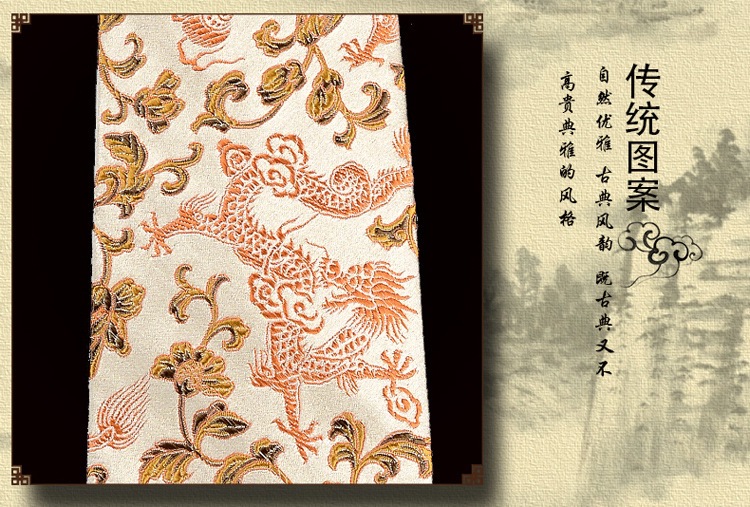 传统图案
自然优雅 古典风韵 既古典又不
高贵典雅的风格